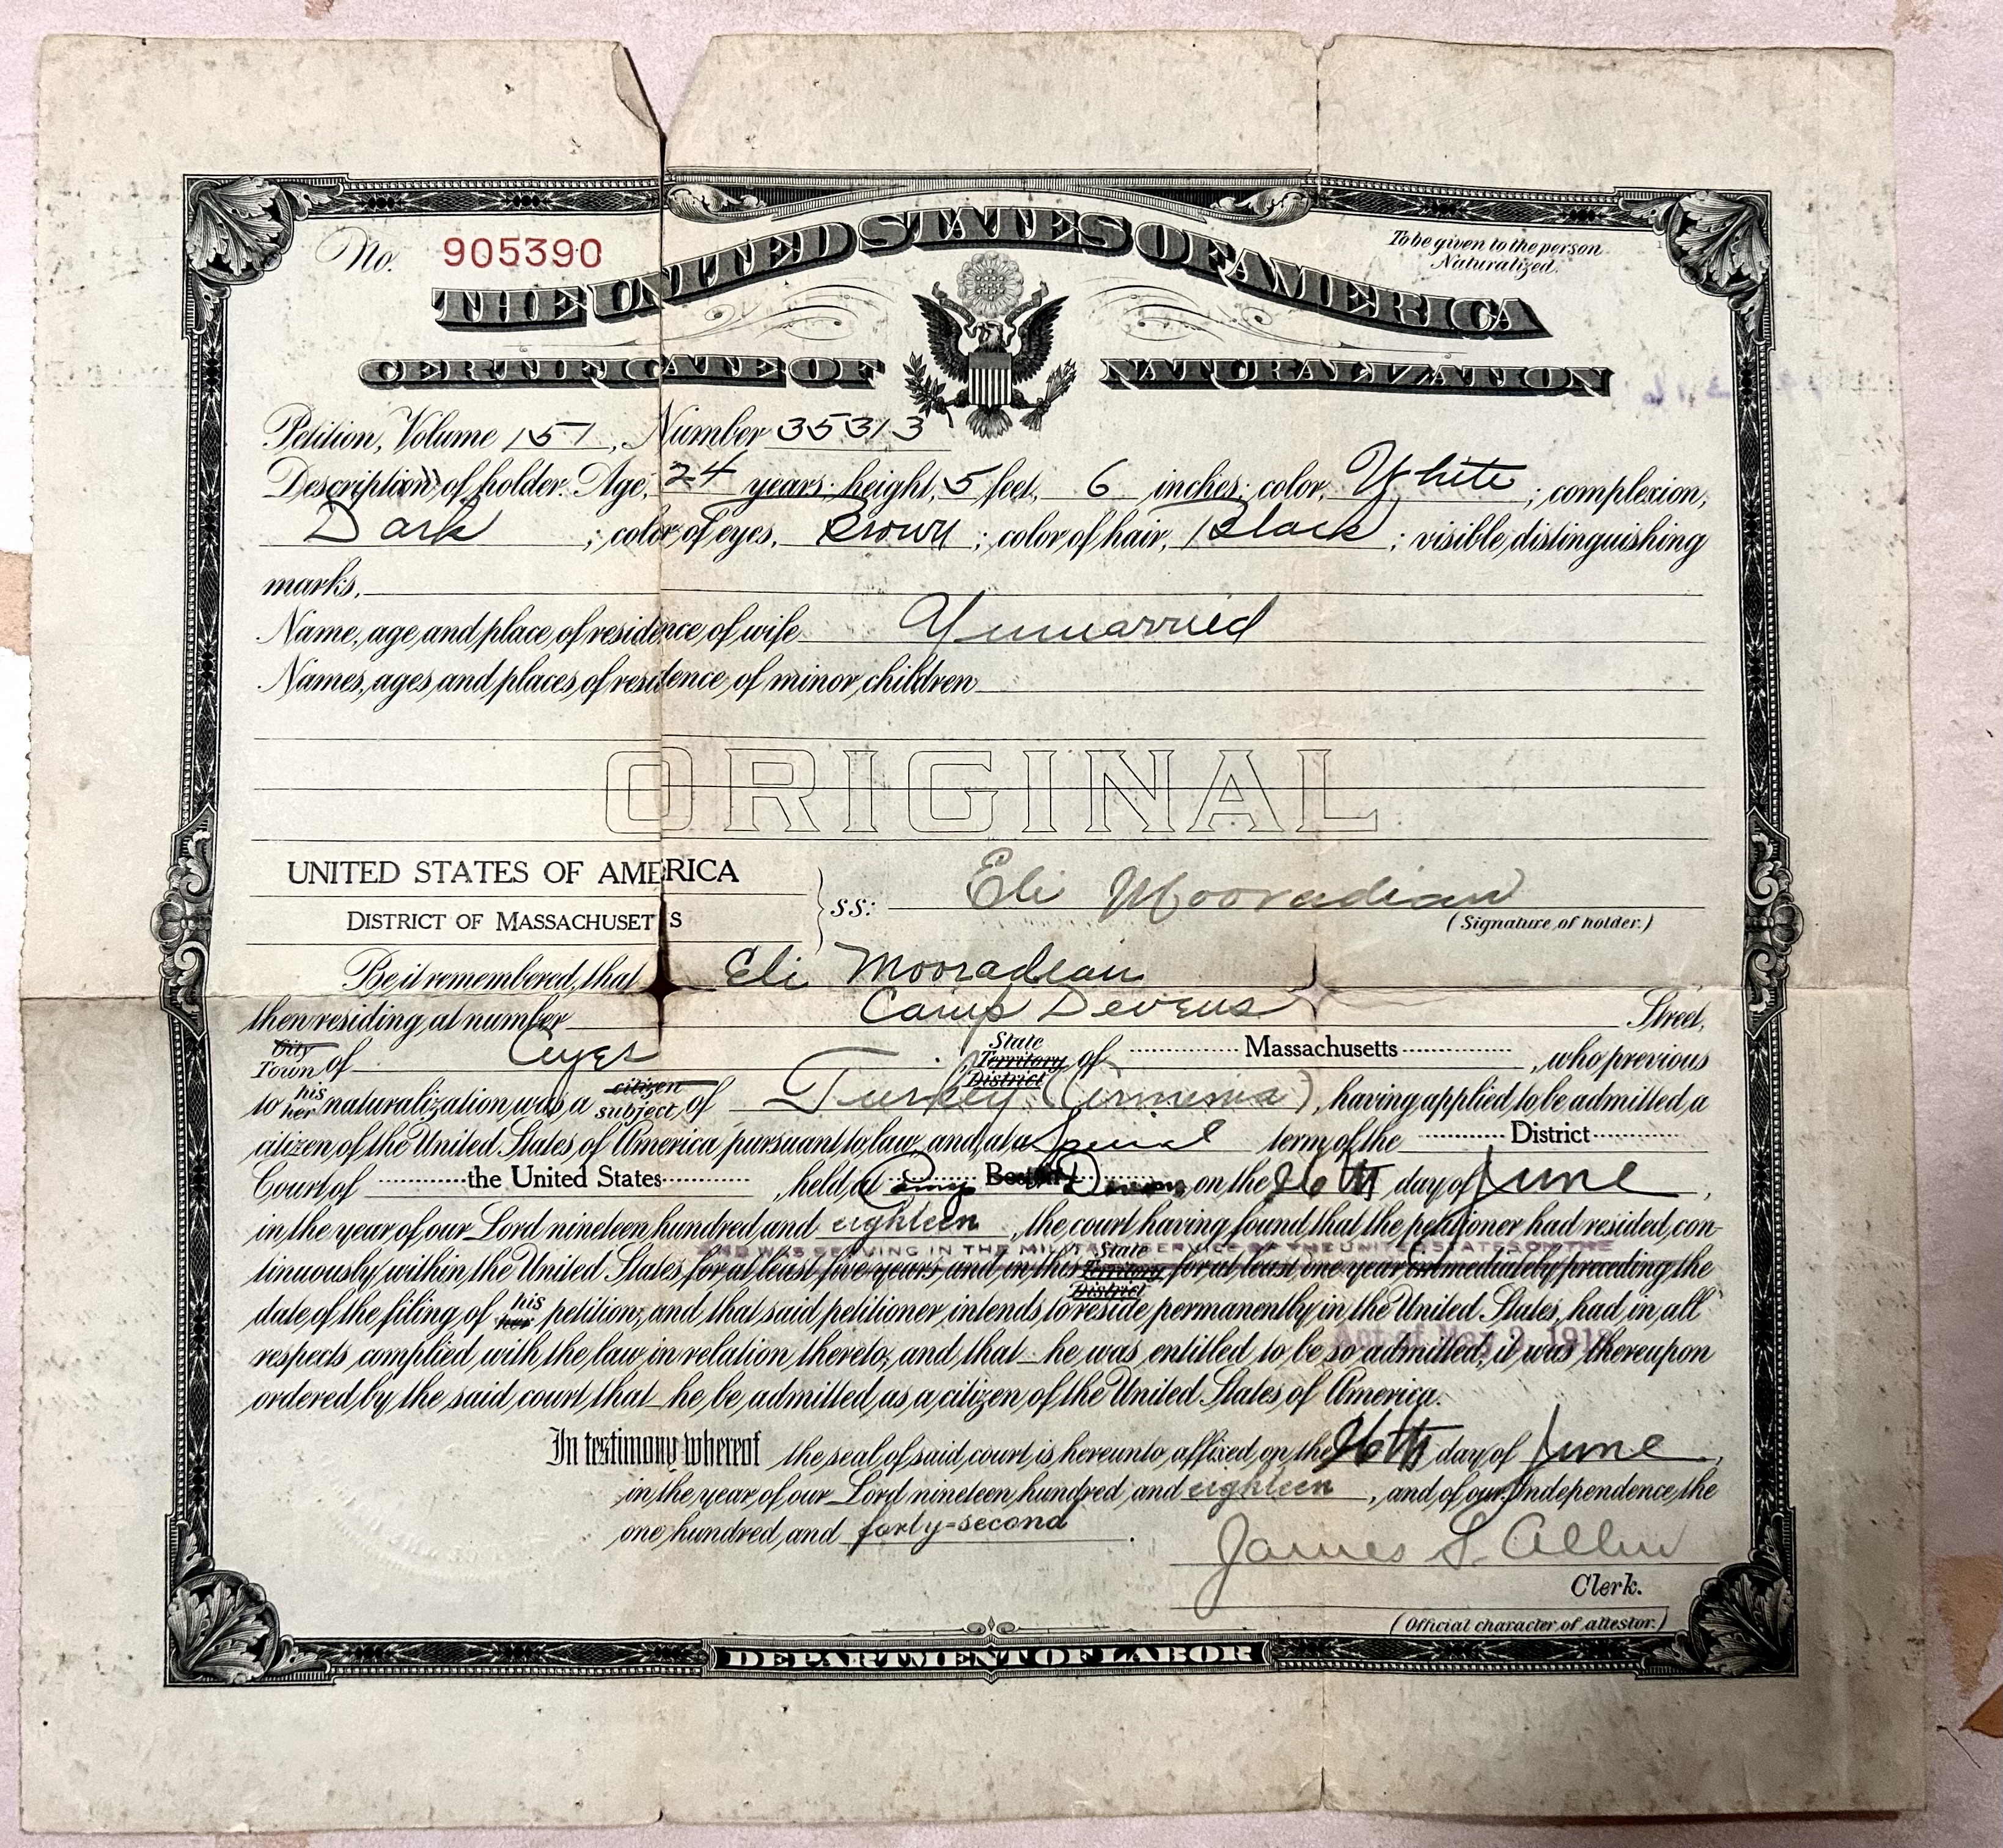 No. 905390
To be given to the person
Naturalized.
THE UNITED STATES OF AMERICA
CERTIFICATE OF NATURALIZATION
Petition, Volume 151, Number 35313
Description of holder: Age, 24 years; height, 5 feet, 6 inches; color, White; complexion,
Dark; color of eyes, Brown; color of hair, Black; visible distinguishing
marks,
Name, age and place of residence of wife Unmarried
Names, ages and places of residence of minor children
ORIGINAL
UNITED STATES OF AMERICA
DISTRICT OF MASSACHUSETTS
ss: Eli Mooradian
(Signature of holder.)
Be it remembered, that Eli Mooradian
then residing at number Camp Devens Street,
City
Town of Ayer, State Territory District of Massachusetts, who previous
to his her naturalization was a citizen subject of Turkey (Armenia), having applied to be admitted a
citizen of the United States of America pursuant to law, and at a Special term of the District
Court of the United States, held at Camp Devens on the 26th day of June,
in the year of our Lord nineteen hundred and eighteen, the court having found that the petitioner had resided con-
AND WAS SERVING IN THE MILITARY SERVICE OF THE UNITED STATES ON THE
tinuously within the United States for at least five years and in this State Territory District for at least one year immediately preceding the
date of the filing of his her petition, and that said petitioner intends to reside permanently in the United States, had in all
Act of May 9, 1918
respects complied with the law in relation thereto, and that he was entitled to be so admitted, it was thereupon
ordered by the said court that he be admitted as a citizen of the United States of America.
In testimony whereof the seal of said court is hereunto affixed on the 26th day of June,
in the year of our Lord nineteen hundred and eighteen, and of our Independence the
one hundred and forty-second.
James S. Allen
Clerk.
(Official character of attestor.)
DEPARTMENT OF LABOR